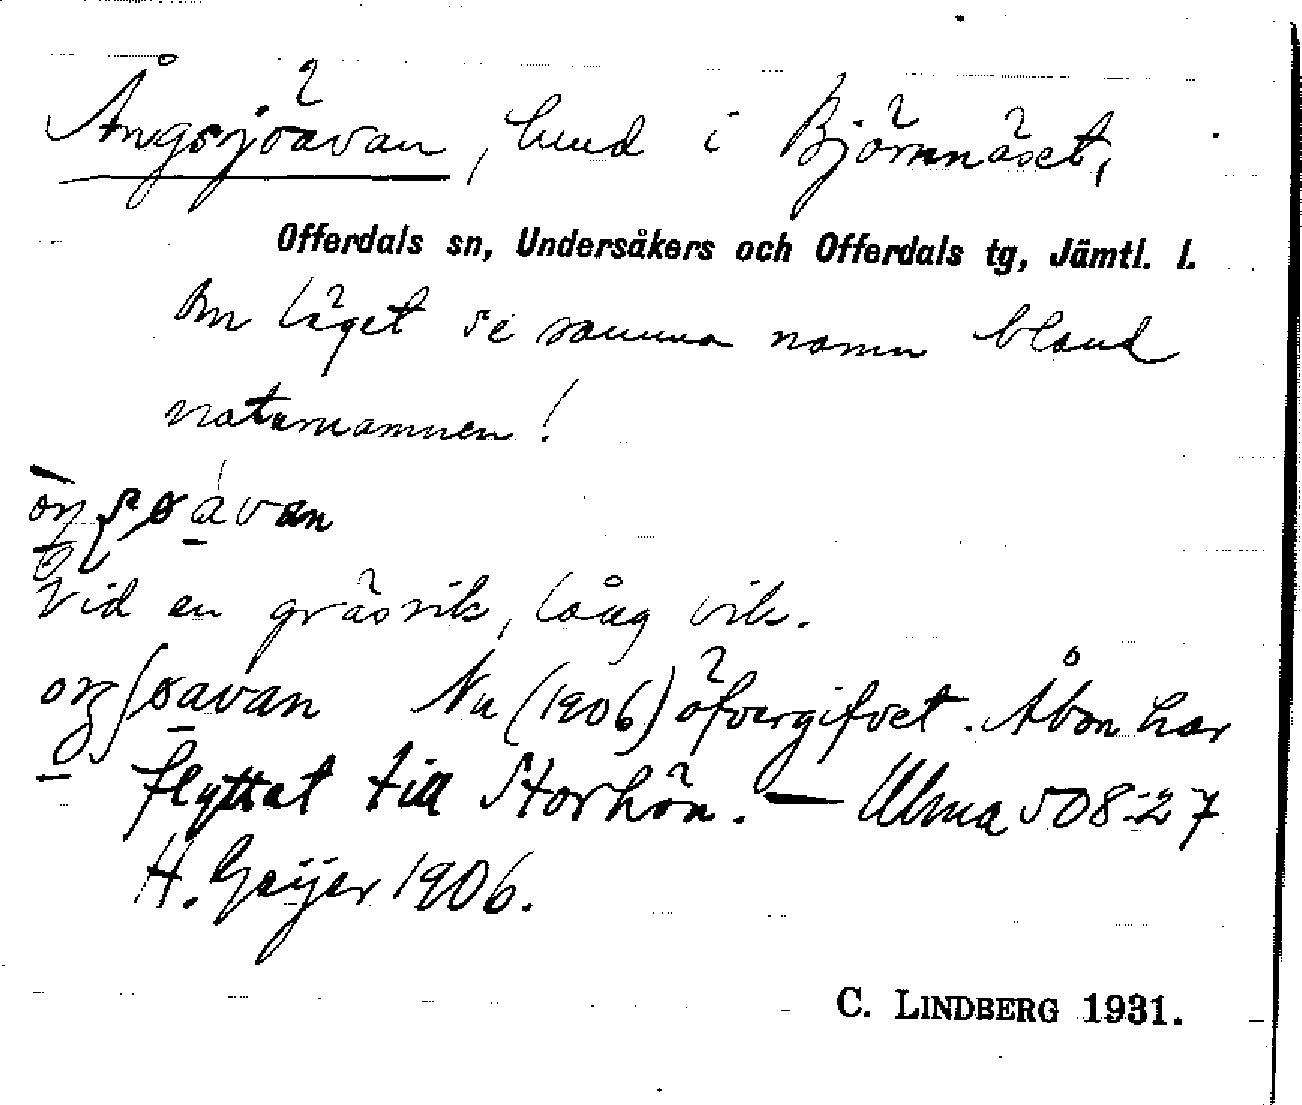 Ångsjöavan, lund i Björnnäset,
Offerdals sn, Undersåkers och Offerdals tg, Jämtl. l.
Om läget se samma namn bland
naturnamnen!
Vid en gräsvik, lång vik.
Nu (1906) öfvergifvet. Åbon har
flyttat till Storhön. — Ulma 508:27
H. Geijer 1906.
C. LINDBERG 1931.